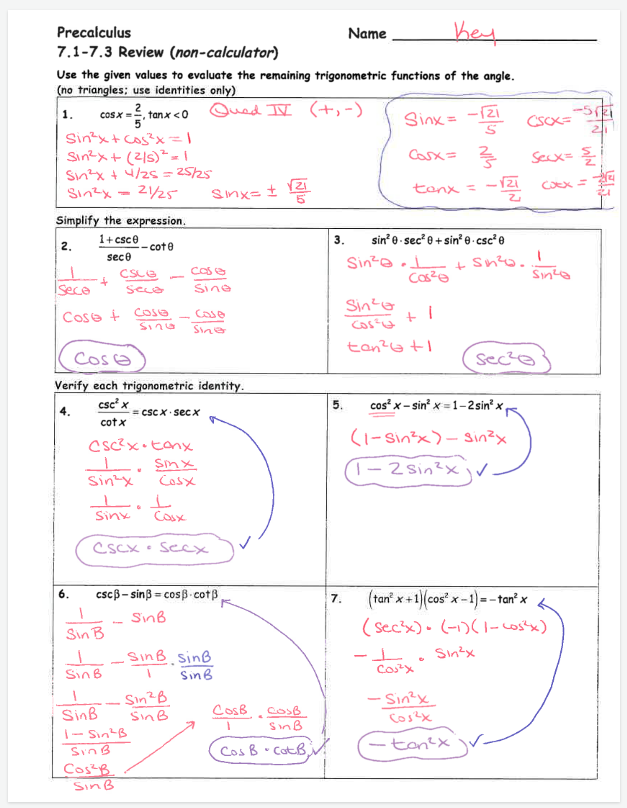 Precalculus
Name Key
7.1-7.3 Review (non-calculator)
Use the given values to evaluate the remaining trigonometric functions of the angle.
(no triangles; use identities only)
1. cos x = 2/5, tan x < 0 Quad IV (+, -)
Sin²x + Cos²x = 1
Sin²x + (2/5)² = 1
Sin²x + 4/25 = 25/25
Sin²x = 21/25 Sinx = ± √21/5
Sinx = -√21/5 Cscx = -5√21/21
Cosx = 2/5 Secx = 5/2
tanx = -√21/2
Simplify the expression.
2. (1+cscθ)/secθ - cotθ
1/Secθ + Cscθ/Secθ - Cosθ/Sinθ
Cosθ + Cosθ/Sinθ - Cosθ/Sinθ
Cosθ
3. sin²θ·sec²θ + sin²θ·csc²θ
Sin²θ · 1/Cos²θ + Sin²θ · 1/Sin²θ
Sin²θ/Cos²θ + 1
tan²θ + 1
Sec²θ
Verify each trigonometric identity.
4. csc² x/cot x = csc x · sec x
CSC²x · tanx
1/Sin²x · Sinx/Cosx
1/Sinx · 1/Cosx
Cscx · Secx ✓
5. cos² x - sin² x = 1 - 2sin² x
(1 - Sin²x) - Sin²x
1 - 2Sin²x ✓
6. cscβ - sinβ = cosβ·cotβ
1/SinB - SinB
1/SinB - SinB/1 · SinB/SinB
1/SinB - Sin²B/SinB
1 - Sin²B/SinB
Cos²B/SinB
CosB/1 · CosB/SinB
CosB · CotB ✓
7. (tan² x + 1)(cos² x - 1) = -tan² x
(Sec²x) · (-1)(1 - cos²x)
- 1/Cos²x · Sin²x
-Sin²x/Cos²x
-tan²x ✓